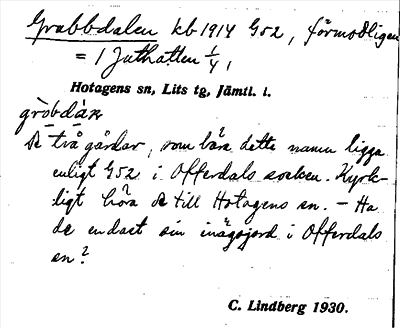 Grubbdalen kb 1914 G52, förmodligen
= 1 Juthatten 1/4,
Hotagens sn, Lits tg, Jämtl. l.
gròbdàn
De två gårdar, som bära detta namn ligga
enligt G52 i Offerdals socken. Kyrk-
ligt höra de till Hotagens sn. – Ha
de endast sin inägojord i Offerdals
sn?
C. Lindberg 1930.